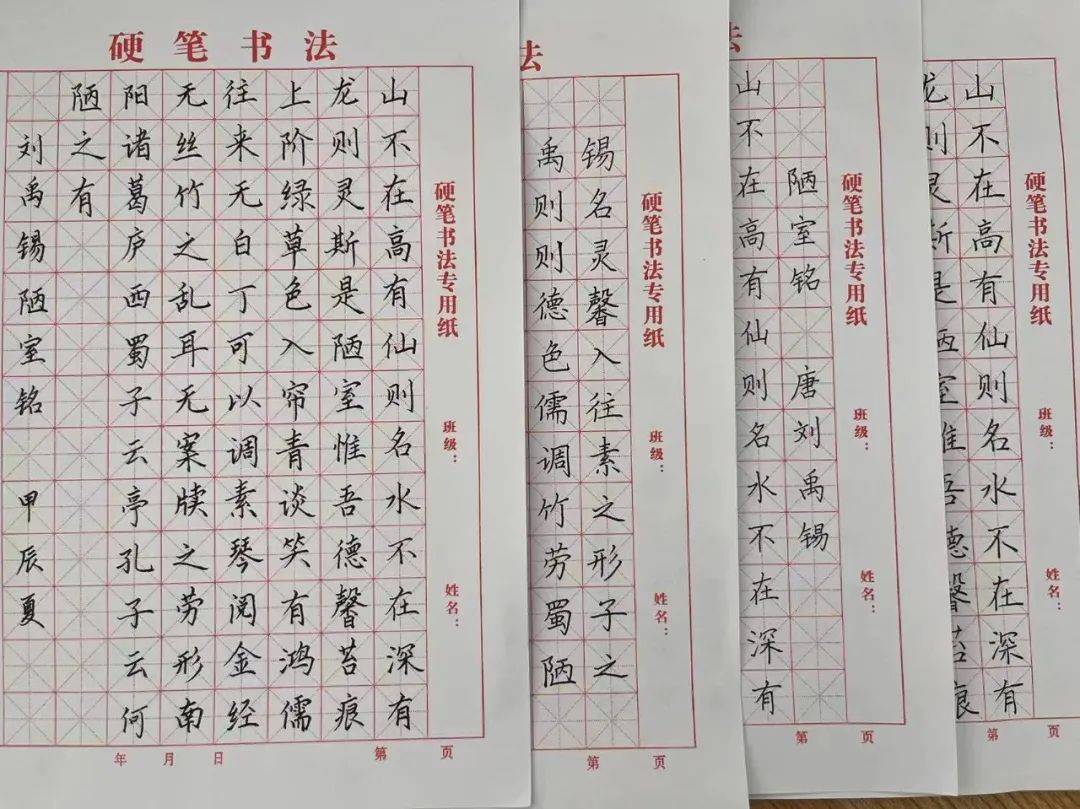 硬笔书法
硬笔书法专用纸 班级： 姓名：
山不在高有仙则名水不在深有
龙则灵斯是陋室惟吾德馨苔痕
上阶绿草色入帘青谈笑有鸿儒
往来无白丁可以调素琴阅金经
无丝竹之乱耳无案牍之劳形南
阳诸葛庐西蜀子云亭孔子云何
陋之有
刘禹锡陋室铭 甲辰夏
年 月 日 第 页
法
硬笔书法专用纸 班级： 姓名：
锡名灵馨入往素之形子之
禹则则德色儒调竹劳蜀陋
第 页
法
硬笔书法专用纸 班级： 姓名：
陋室铭 唐刘禹锡
山不在高有仙则名水不在深有
第 页
硬笔书法专用纸 班级： 姓名：
山不在高有仙则名水不在深有
龙则灵斯是陋室惟吾德馨苔痕
第 页